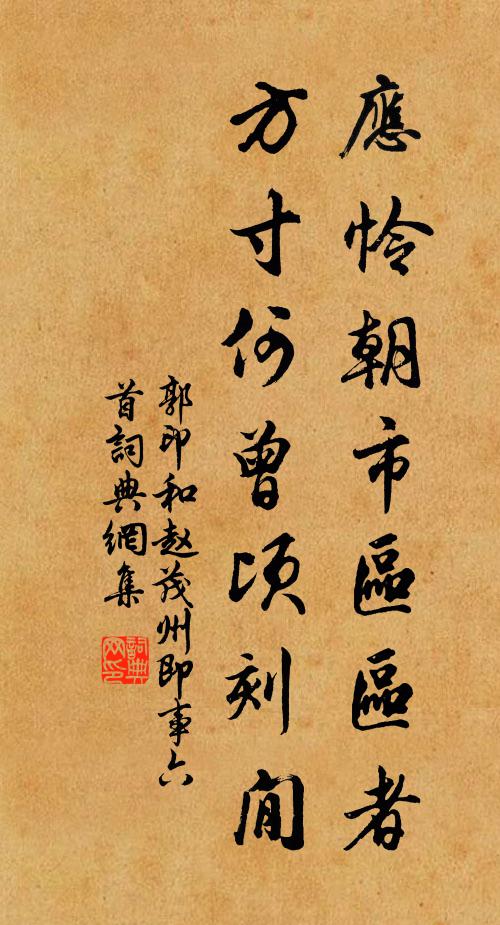 應怜朝市區區者
方寸何曾頃刻閒
郭印和赵茂州即事六
首詞典網集
詞典
网印